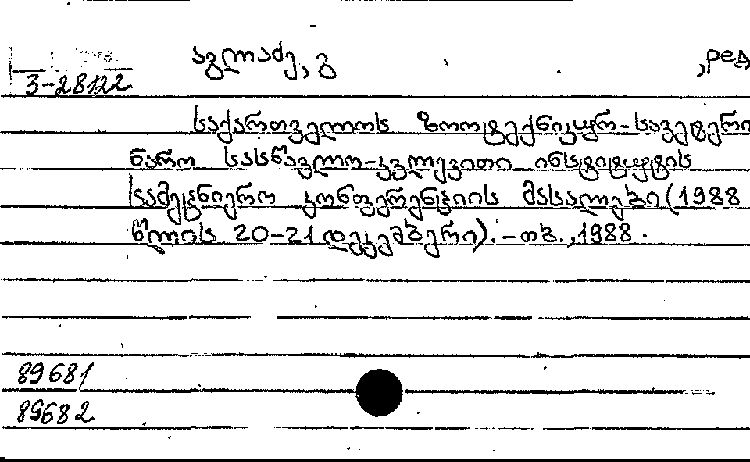 აგლაძე, გ ,ред
3-28122
საქართველოს ზოოტექნიკურ-სავეტერი
ნარო სასწავლო-კვლევითი ინსტიტუტის
სამეცნიერო კონფერენციის მასალები(1988
წლის 20-21 დეკემბერი). - თბ., 1988.
89681
89682